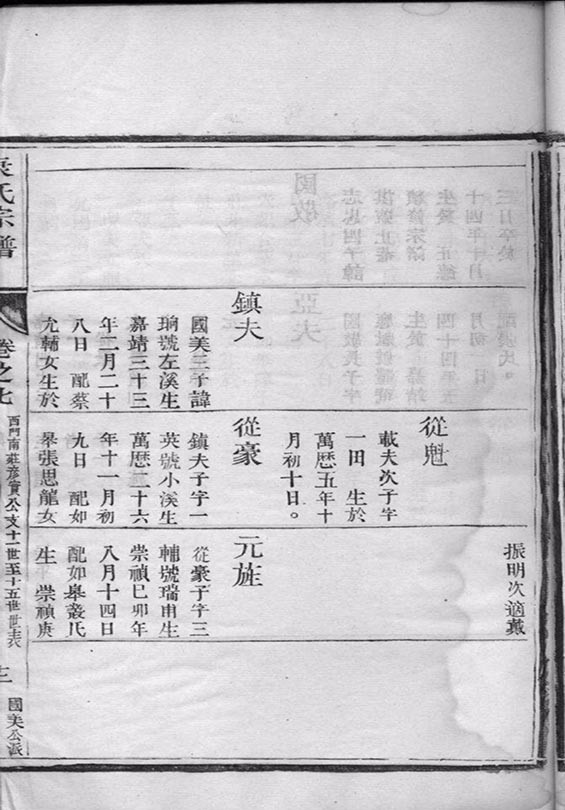 振明次適戴
從魁
載夫次子字
一田 生於
萬曆五年十
月初十日。
鎮夫
國美三子諱
珦號左溪生
嘉靖三十三
年二月二十
八日 配蔡
允輔女生於
從豪
鎮夫子字一
英號小溪生
萬曆二十六
年十一月初
九日 配如
皋張思龍女
元旌
從豪子字三
輔號瑞甫生
崇禎己卯年
八月十四日
配如皋叢氏
生 崇禎庚
袁氏宗譜
卷之七
西門南莊彥實公支十一世至十五世世表
國美公派